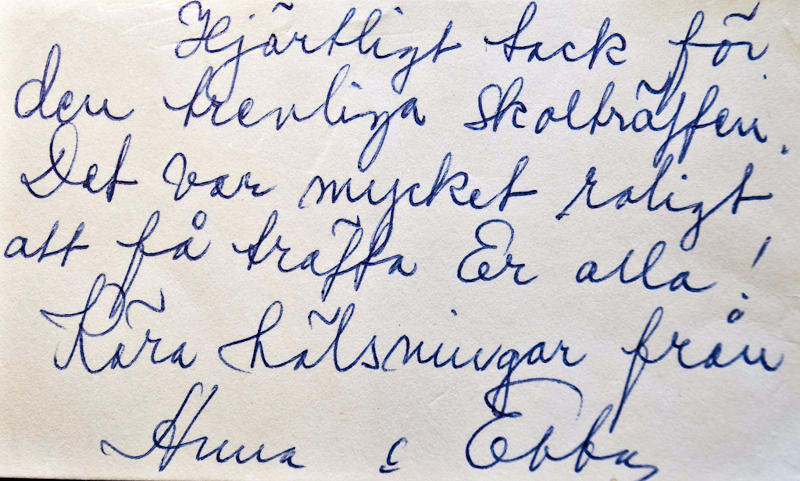 Hjärtligt tack för
den trevliga skolträffen.
Det var mycket roligt
att få träffa Er alla!
Kära hälsningar från
Anna & Ebba